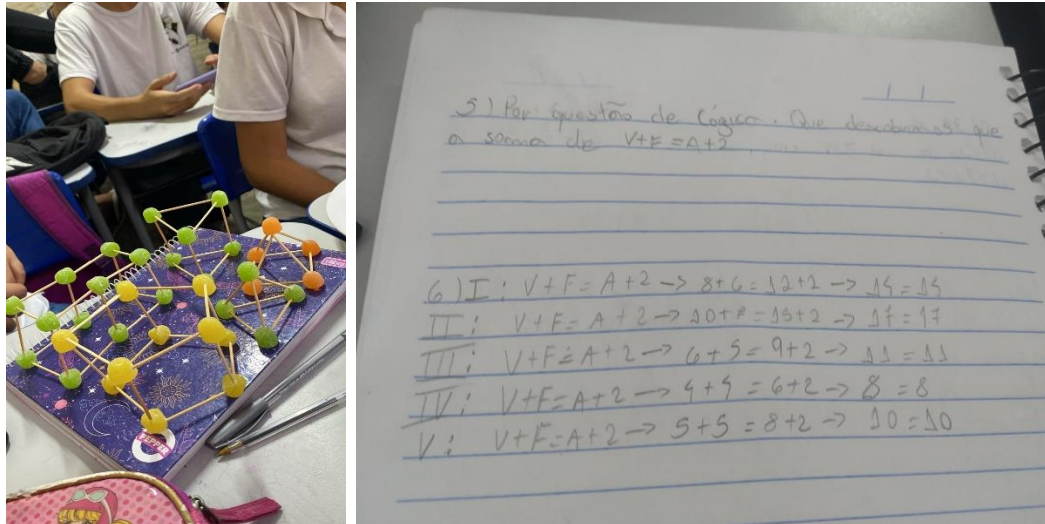 5) Por questão de lógica. Que descobrimos que
a soma de V+F = A+2
6) I: V+F = A+2 -> 8+6 = 12+2 -> 14 = 14
II: V+F = A+2 -> 10+7 = 15+2 -> 17 = 17
III: V+F = A+2 -> 6+5 = 9+2 -> 11 = 11
IV: V+F = A+2 -> 4+4 = 6+2 -> 8 = 8
V: V+F = A+2 -> 5+5 = 8+2 -> 10 = 10